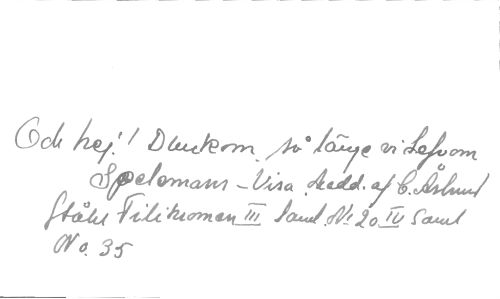 Och hej! Druckom så länge vi Lefvom
Spelemans-Visa medd. af C. Åslund
Ståhl Filikroman III Saml. No 20 IV Saml
No. 35